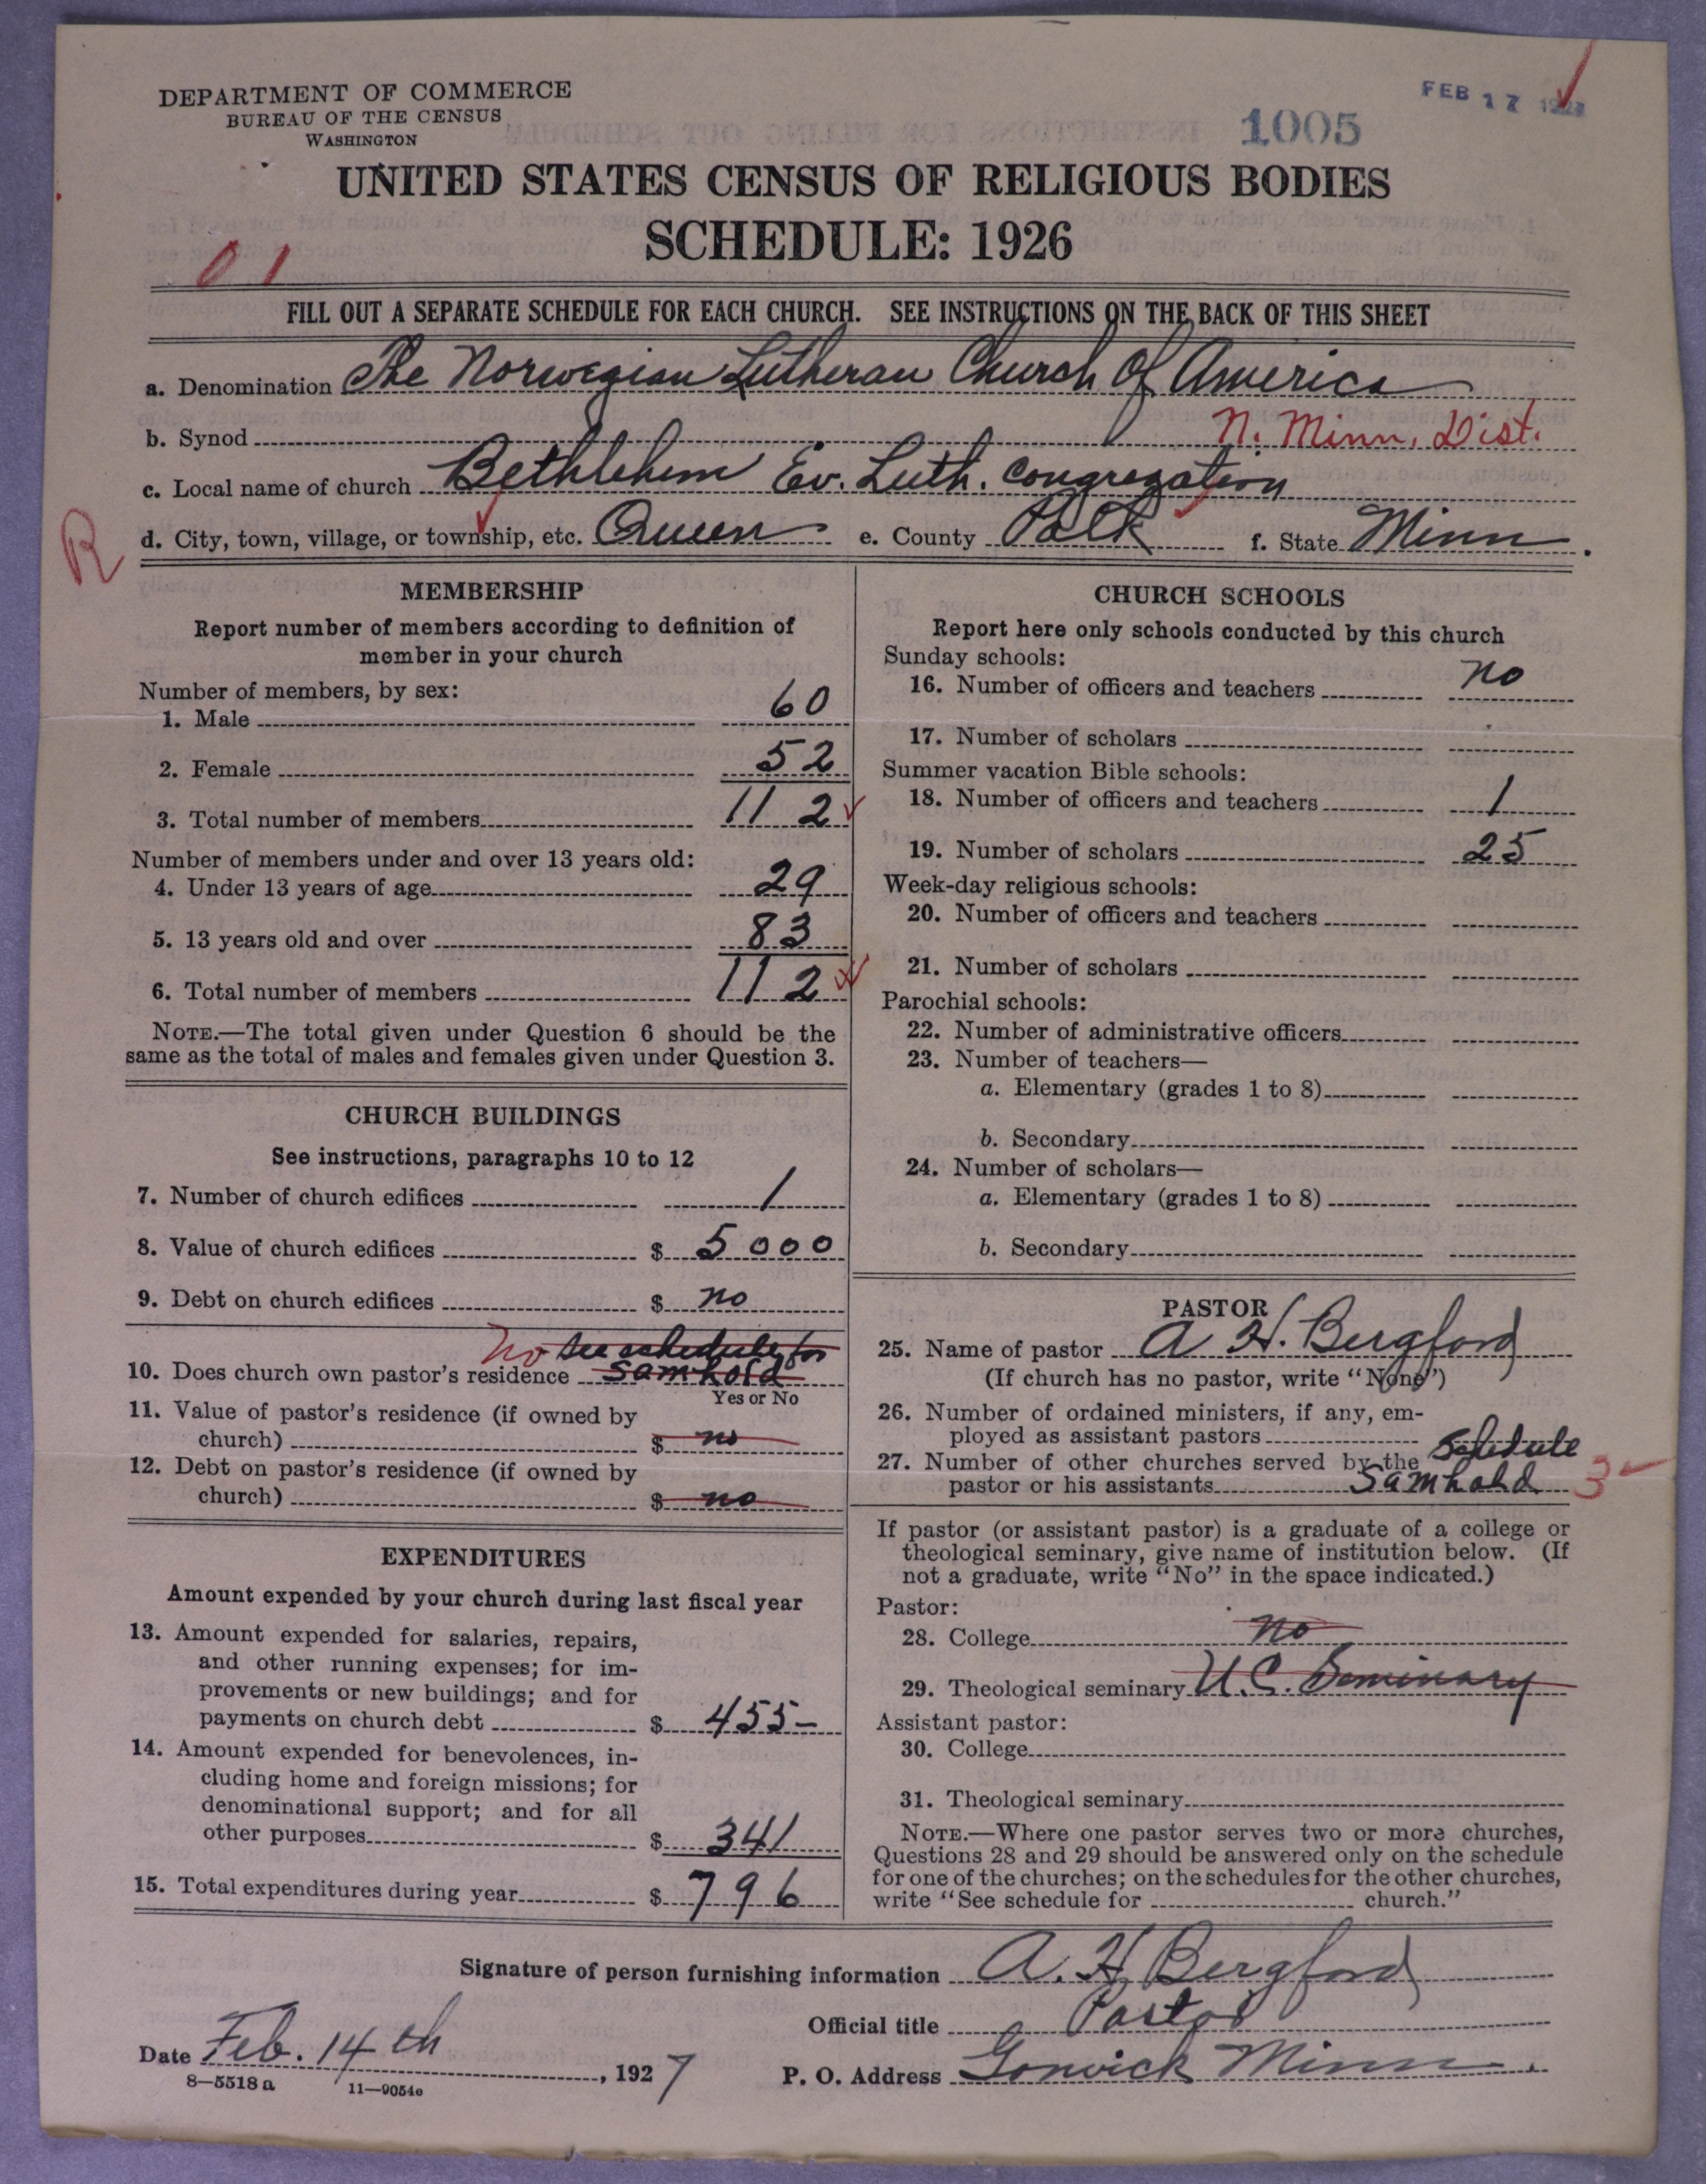 DEPARTMENT OF COMMERCE
BUREAU OF THE CENSUS
WASHINGTON
FEB 17
1005
UNITED STATES CENSUS OF RELIGIOUS BODIES
SCHEDULE: 1926
01
FILL OUT A SEPARATE SCHEDULE FOR EACH CHURCH. SEE INSTRUCTIONS ON THE BACK OF THIS SHEET
a. Denomination The Norwegian Lutheran Church Of America
b. Synod N. Minn. Dist.
c. Local name of church Bethlehem Ev. Luth. Congregation
R
d. City, town, village, or township, etc. Queen e. County Polk f. State Minn.
MEMBERSHIP
Report number of members according to definition of
member in your church
Number of members, by sex:
1. Male 60
2. Female 52
3. Total number of members 112
Number of members under and over 13 years old:
4. Under 13 years of age 29
5. 13 years old and over 83
6. Total number of members 112
NOTE.—The total given under Question 6 should be the
same as the total of males and females given under Question 3.
CHURCH BUILDINGS
See instructions, paragraphs 10 to 12
7. Number of church edifices 1
8. Value of church edifices $ 5000
9. Debt on church edifices $ no
No see schedule for
10. Does church own pastor's residence Samhold
Yes or No
11. Value of pastor's residence (if owned by
church) $ no
12. Debt on pastor's residence (if owned by
church) $ no
EXPENDITURES
Amount expended by your church during last fiscal year
13. Amount expended for salaries, repairs,
and other running expenses; for im-
provements or new buildings; and for
payments on church debt $ 455–
14. Amount expended for benevolences, in-
cluding home and foreign missions; for
denominational support; and for all
other purposes $ 341
15. Total expenditures during year $ 796
CHURCH SCHOOLS
Report here only schools conducted by this church
Sunday schools:
16. Number of officers and teachers no
17. Number of scholars
Summer vacation Bible schools:
18. Number of officers and teachers 1
19. Number of scholars 25
Week-day religious schools:
20. Number of officers and teachers
21. Number of scholars
Parochial schools:
22. Number of administrative officers
23. Number of teachers—
a. Elementary (grades 1 to 8)
b. Secondary
24. Number of scholars—
a. Elementary (grades 1 to 8)
b. Secondary
PASTOR
25. Name of pastor A H. Bergford
(If church has no pastor, write "None")
26. Number of ordained ministers, if any, em-
ployed as assistant pastors
27. Number of other churches served by the Schedule
pastor or his assistants Samhold 3
If pastor (or assistant pastor) is a graduate of a college or
theological seminary, give name of institution below. (If
not a graduate, write "No" in the space indicated.)
Pastor:
28. College no
29. Theological seminary U.C. Seminary
Assistant pastor:
30. College
31. Theological seminary
NOTE.—Where one pastor serves two or more churches,
Questions 28 and 29 should be answered only on the schedule
for one of the churches; on the schedules for the other churches,
write "See schedule for church."
Signature of person furnishing information A. H. Bergford
Official title Pastor
Date Feb. 14th, 1927
P. O. Address Gonvick Minn.
8—5518 a 11—9054e